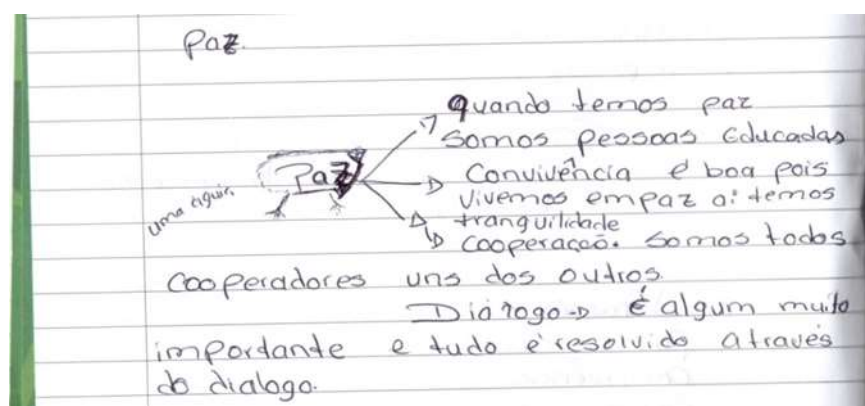 Paz.
quando temos paz
somos pessoas educadas
Paz
Convivência é boa pois
vivemos em paz ai temos
tranquilidade
cooperação. somos todos
cooperadores uns dos outros.
Diárogo → É algum muito
importante e tudo é resolvido através
do dialogo.
uma